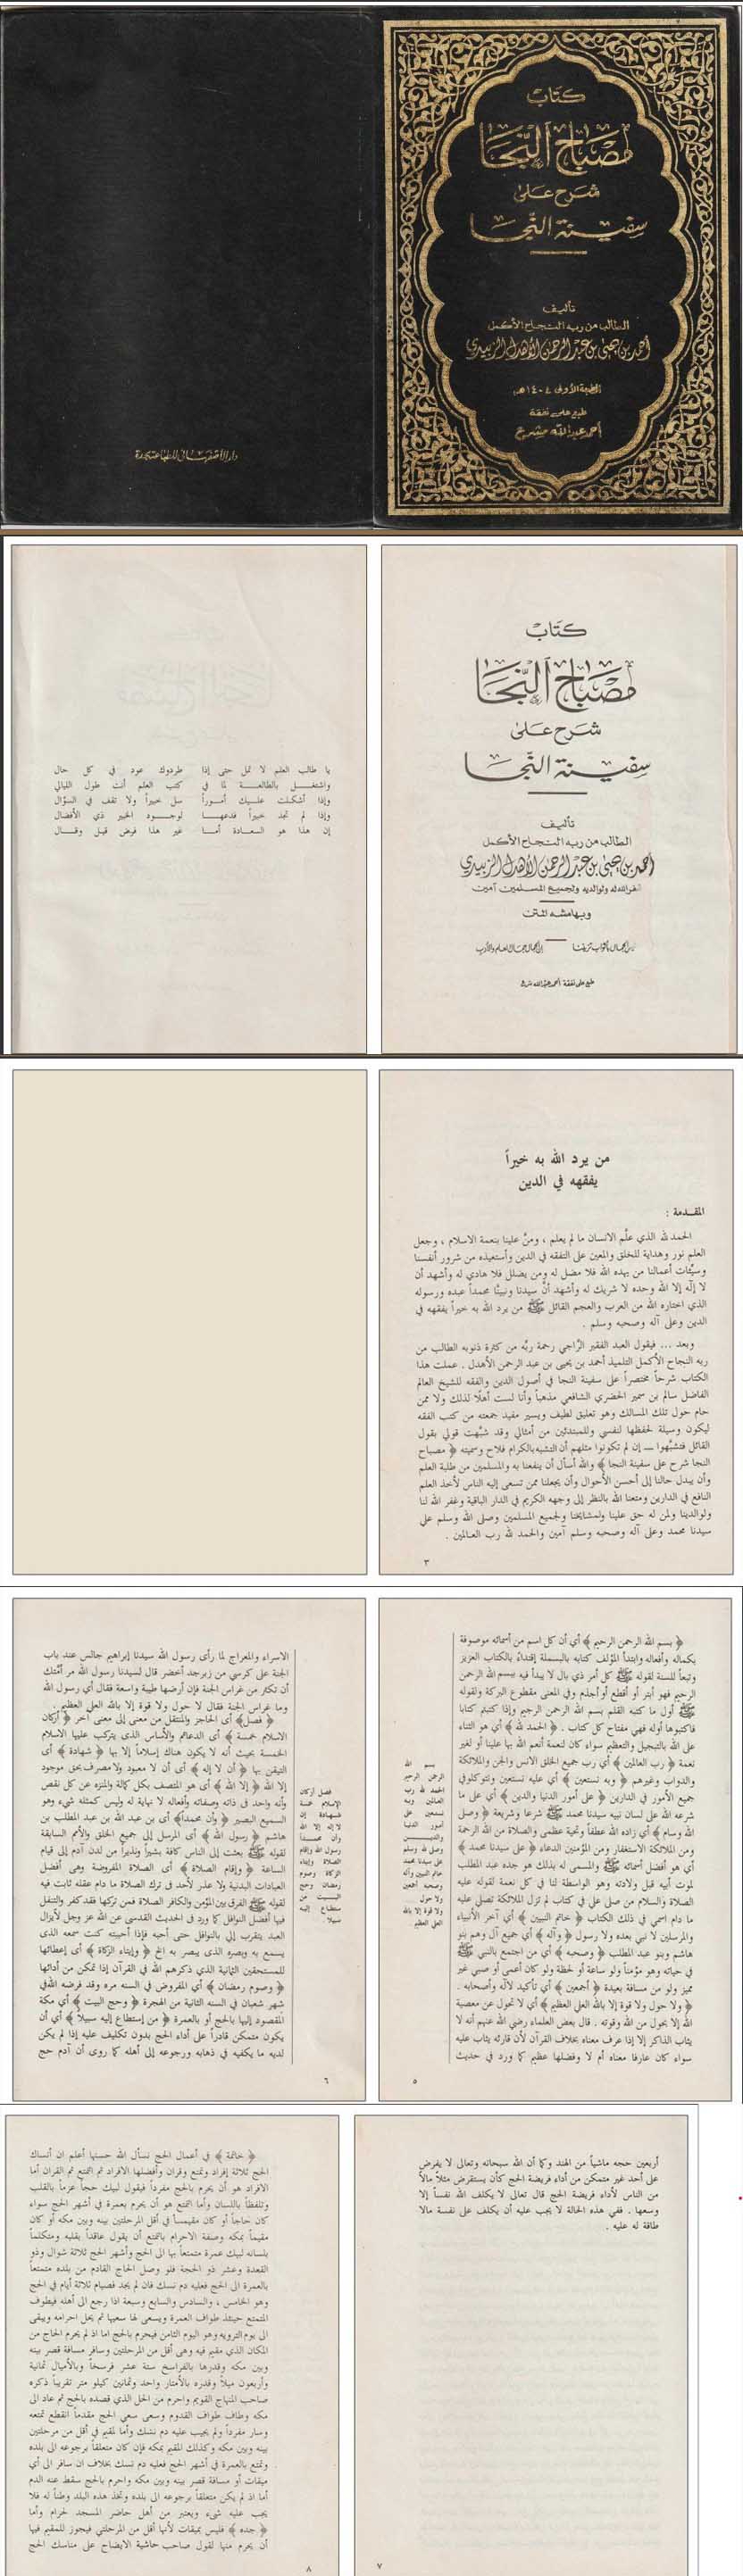 كتاب
مصباح النجا
شرح على
سفينة النجا
تأليف
الطالب من ربه النجاح الأكمل
أحمد بن يحيى بن عبد الرحمن الأهدل الزبيدي
الطبعة الأولى ١٤٠٤هـ
طبع على نفقة
أحمد عبدالله مشرع
دار الأصفهاني للطباعة بجدة
كتاب
مصباح النجا
شرح على
سفينة النجا
تأليف
الطالب من ربه النجاح الأكمل
أحمد بن يحيى بن عبد الرحمن الأهدل الزبيدي
غفر الله له ولوالديه ولجميع المسلمين آمين
وبهامشه المتن
ليس الجمال بأثواب تزيننا إن الجمال جمال العلم والأدب
طبع على نفقة أحمد عبدالله مشرع
يا طالب العلم لا تمل حتى إذا طردوك عود في كل حال
واشتغل بالمطالعة لما في كتب العلم أنت طول الليالي
وإذا أشكلت عليك أموراً سل خبيراً ولا تقف في السؤال
وإذا لم تجد خبيراً فدعها لوجود الخبير ذي الأفضال
إن هذا هو السعادة أما غير هذا فرض قيل وقال
من يرد الله به خيراً
يفقهه في الدين
المقدمة :
الحمد لله الذي علَّم الانسان ما لم يعلم ، ومنَّ علينا بنعمة الاسلام ، وجعل
العلم نور وهداية للخلق والمعين على التفقه في الدين وأستعيذه من شرور أنفسنا
وسيئات أعمالنا من يهده الله فلا مضل له ومن يضلل فلا هادي له وأشهد أن
لا إله إلا الله وحده لا شريك له وأشهد أنَّ سيدنا ونبينا محمداً عبده ورسوله
الذي اختاره الله من العرب والعجم القائل ﷺ من يرد الله به خيراً يفقهه في
الدين وعلى آله وصحبه وسلم .
وبعد ... فيقول العبد الفقير الرَّاجي رحمة ربَّه من كثرة ذنوبه الطالب من
ربه النجاح الأكمل التلميذ أحمد بن يحيى بن عبد الرحمن الأهدل . عملت هذا
الكتاب شرحاً مختصراً على سفينة النجا في أصول الدين والفقه للشيخ العالم
الفاضل سالم بن سمير الحضري الشافعي مذهباً وأنا لست أهلًا لذلك ولا ممن
حام حول تلك المسالك وهو تعليق لطيف ويسير مفيد جمعته من كتب الفقه
ليكون وسيلة لحفظها لنفسي وللمبتدئين من أمثالي وقد شبَّهت قولي بقول
القائل فتشبَّهوا ــ إن لم تكونوا مثلهم أن التشبه بالكرام فلاح وسميته ﴿ مصباح
النجا شرح على سفينة النجا ﴾ والله أسأل أن ينفعنا به والمسلمين من طلبة العلم
وأن يبدل حالنا إلى أحسن الأحوال وأن يجعلنا ممن تسعى إليه الناس لأخذ العلم
النافع في الدارين ومتعنا الله بالنظر إلى وجهه الكريم في الدار الباقية وغفر الله لنا
ولوالدينا ولمن له حق علينا ولمشايخنا ولجميع المسلمين وصلى الله وسلم على
سيدنا محمد وعلى آله وصحبه وسلم آمين والحمد لله رب العالمين .
٣
﴿ بسم الله الرحمن الرحيم ﴾ أي أن كل اسم من أسمائه موصوفة
بكماله وأفعاله وابتدأ المؤلف كتابه بالبسملة إقتداءً بالكتاب العزيز
وتبعاً للسنة لقوله ﷺ كل أمر ذي بال لا يبدأ فيه ببسم الله الرحمن
الرحيم فهو أبتر أو أقطع أو أجذم وفي المعنى مقطوع البركة ولقوله
ﷺ أول ما كتبه القلم بسم الله الرحمن الرحيم وإذا كتبتم كتابا
فاكتبوها أوله فهي مفتاح كل كتاب . ﴿ الحمد لله ﴾ أي هو الثناء
على الله بالتبجيل والتعظيم سواء كان لنعمة أنعم الله بها علينا أو لغير
نعمة ﴿ رب العالمين ﴾ أي رب جميع الخلق الانس والجن والملائكة
والدواب وغيرهم ﴿ وبه نستعين ﴾ أي عليه نستعين ونتوكل في
جميع الأمور في الدارين ﴿ على أمور الدنيا والدين ﴾ أي على ما
شرعه الله على لسان نبيه سيدنا محمد ﷺ شرعا وشريعة ﴿ وصلى
الله وسلم ﴾ أي زاده الله عطفاً وتحية عظمى والصلاة من الله الرحمة
ومن الملائكة الاستغفار ومن المؤمنين الدعاء ﴿ على سيدنا محمد ﴾
أي هو أفضل أسمائه ﷺ والمسمى له بذلك هو جده عبد المطلب
لموت أبيه قبل ولادته وهو الواسطة لنا في كل نعمة لقوله عليه
الصلاة والسلام من صلى علي في كتاب لم تزل الملائكة تصلي عليه
ما دام اسمي في ذلك الكتاب ﴿ خاتم النبيين ﴾ أي آخر الأنبياء
والمرسلين لا نبي بعده ولا رسول ﴿ وآله ﴾ أي جميع آل وهم بنو
هاشم وبنو عبد المطلب ﴿ وصحبه ﴾ أي من اجتمع بالنبي ﷺ
في حياته وهو مؤمناً ولو ساعة أو لحظة ولو كان أعمى أو صبي غير
مميز ولو من مسافة بعيدة ﴿ أجمعين ﴾ أي تأكيد لآله وأصحابه .
﴿ ولا حول ولا قوة إلا بالله العلي العظيم ﴾ أي لا تحول عن معصية
الله إلا بحول من الله وقوته . قال بعض العلماء رضي الله عنهم أنه لا
يثاب الذاكر إلا إذا عرف معناه بخلاف القرآن لأن قارئه يثاب عليه
سواء كان عارفا معناه أم لا وفضلها عظيم كما ورد في حديث
بسم الله
الرحمن الرحيم
الحمد لله رب
العالمين وبه
نستعين على
أمور الدنيا
والدين
وصلى الله وسلم
على سيدنا محمد
خاتم النبيين وآله
وصحبه أجمعين
ولا حول
ولا قوة إلا بالله
العلي العظيم
٥
الاسراء والمعراج لما رأى رسول الله سيدنا إبراهيم جالس عند باب
الجنة على كرسي من زبرجد أخضر قال لسيدنا رسول الله مر أمَّتك
أن تكثر من غراس الجنة فإن أرضها طيبة واسعة فقال أي رسول الله
وما غراس الجنة فقال لا حول ولا قوة إلا بالله العلي العظيم .
﴿ فصل﴾ أى الحاجز والمنتقل من معنى إلى معنى آخر ﴿ أركان
الاسلام خمسة ﴾ أى الدعائم والأساس الذى يتركب عليها الاسلام
الخمسة بحيث أنه لا يكون هناك إسلاماً إلا بها ﴿ شهادة﴾ أى
التيقن بها ﴿ أن لا إله ﴾ أى أن لا معبود ولا مصرف بحق موجود
إلا الله ﴿ إلا الله ﴾ أى هو المتصف بكل كمالة والمنزه عن كل نقص
وأنه واحد فى ذاته وصفاته وأفعاله لا نهاية له وليس كمثله شيء وهو
السميع البصير ﴿ وأن محمداً﴾ أى بن عبد الله بن عبد المطلب بن
هاشم ﴿ رسول الله ﴾ أى المرسل إلى جميع الخلق والأمم السابقة
لقوله ﷺ بعثت إلى الناس كافة بشيراً ونذيراً من لدن آدم إلى قيام
الساعة ﴿ وإقام الصلاة ﴾ أى الصلاة المفروضة وهى أفضل
العبادات البدنية ولا عذر لأحد فى ترك الصلاة ما دام عقله ثابت فيه
لقوله ﷺ الفرق بين المؤمن والكافر الصلاة فمن تركها فقد كفر والتنفل
فيها أفضل النوافل كما ورد فى الحديث القدسى عن الله عز وجل لايزال
العبد يتقرب إلي بالنوافل حتى أحبه فإذا أحببته كنت سمعه الذى
يسمع به وبصره الذى يبصر به الخ ﴿ وإيتاء الزكاة ﴾ أى إعطائها
للمستحقين الثمانية الذي ذكرهم الله في القرآن إذا تمكن من أدائها
﴿ وصوم رمضان ﴾ أي المفروض في السنه مره وقد فرضه الله في
شهر شعبان في السنه الثانية من الهجرة ﴿ وحج البيت ﴾ أي مكة
المقصود إليها بالحج أو بالعمرة ﴿ من إستطاع إليه سبيلا ﴾ أي أن
يكون متمكن قادراً على أداء الحج بدون تكليف عليه إذا لم يكن
لديه ما يكفيه في ذهابه ورجوعه إلى أهله كما روى أن آدم حج
فصل أركان
الإسلام خمسة
شهادة إن
لا إله إلا الله
وأن محمداً
رسول الله وإقام
الصلاة وإيتاء
الزكاة وصوم
رمضان وحج
البيت من
ستطاع إليه
سبيلا .
٦
أربعين حجه ماشياً من الهند وكما أن الله سبحانه وتعالى لا يفرض
على أحد غير متمكن من أداء فريضة الحج كأن يستقرض مثلاً مالاً
من الناس لأداء فريضة الحج قال تعالى لا يكلف الله نفساً إلا
وسعها . ففي هذه الحالة لا يجب عليه أن يكلف على نفسة مالا
طاقة له عليه .
٧
﴿ خاتمة ﴾ في أعمال الحج نسأل الله حسنها أعلم ان أنساك
الحج ثلاثة إفراد وتمتع وقران وأفضلها الافراد ثم التمتع ثم القران أما
الافراد هو أن يحرم بالحج مفرداً فيقول لبيك حجا عزماً بالقلب
وتلفظاً باللسان وأما التمتع هو أن يحرم بعمرة في أشهر الحج سواء
كان حاجاً أو كان مقيمساً في أقل المرحلتين بينه وبين مكه أو كان
مقيماً بمكه وصفة الاحرام بالتمتع أن يقول عاقداً بقلبه ومتكلماً
بلسانه لبيك عمرة متمتعاً بها الى الحج وأشهر الحج ثلاثة شوال وذو
القعدة وعشر ذو الحجة فلو وصل الحاج القادم من بلده متمتعاً
بالعمرة الى الحج فعليه دم نسك فان لم يجد فصيام ثلاثة أيام في الحج
وهو الخامس ، والسادس والسابع وسبعة اذا رجع الى أهله فيطوف
المتمتع حينئذ طواف العمرة ويسعى لها سعيها ثم يحل احرامه ويبقى
الى يوم الترويه وهو اليوم الثامن فيحرم بالحج اما اذ لم يحرم الحاج من
المكان الذي مقيم فيه وهى أقل من المرحلتين وسافر مسافة قصر بينه
وبين مكه وقدرها بالفراسخ ستة عشر فرسخاً وبالأميال ثمانية
وأربعون ميلاً وقدره بالأمتار واحد وثمانين كيلو متر تقريباً ذكره
صاحب المنهاج القويم واحرم من الحل الذي قصده بالحج ثم عاد الى
مكه وطاف طواف القدوم وسعى سعي الحج مقدماً انقطع تمتعه
وسار مفرداً ولم يجب عليه دم نسك وأما لمقيم في أقل من مرحلتين
بينه وبين مكه وكذلك المقيم بمكه فإن كان متعلقاً برجوعه الى بلده
وتمتع بالعمرة في أشهر الحج فعليه دم نسك بخلاف ان سافر الى أي
ميقات أو مسافة قصر بينه وبين مكه واحرم بالحج سقط عنه الدم
أما اذ لم يكن متعلقاً برجوعه الى بلده وتخذ هذه البلد وطناً له فلا
يجب عليه شيء ويعتبر من أهل حاضر المسجد لحرام وأما
﴿ جده ﴾ فليس بميقات لأنها أقل من المرحلتي فيجوز للمقيم فيها
أن يحرم منها لقول صاحب حاشية الايضاح على مناسك الحج
٨